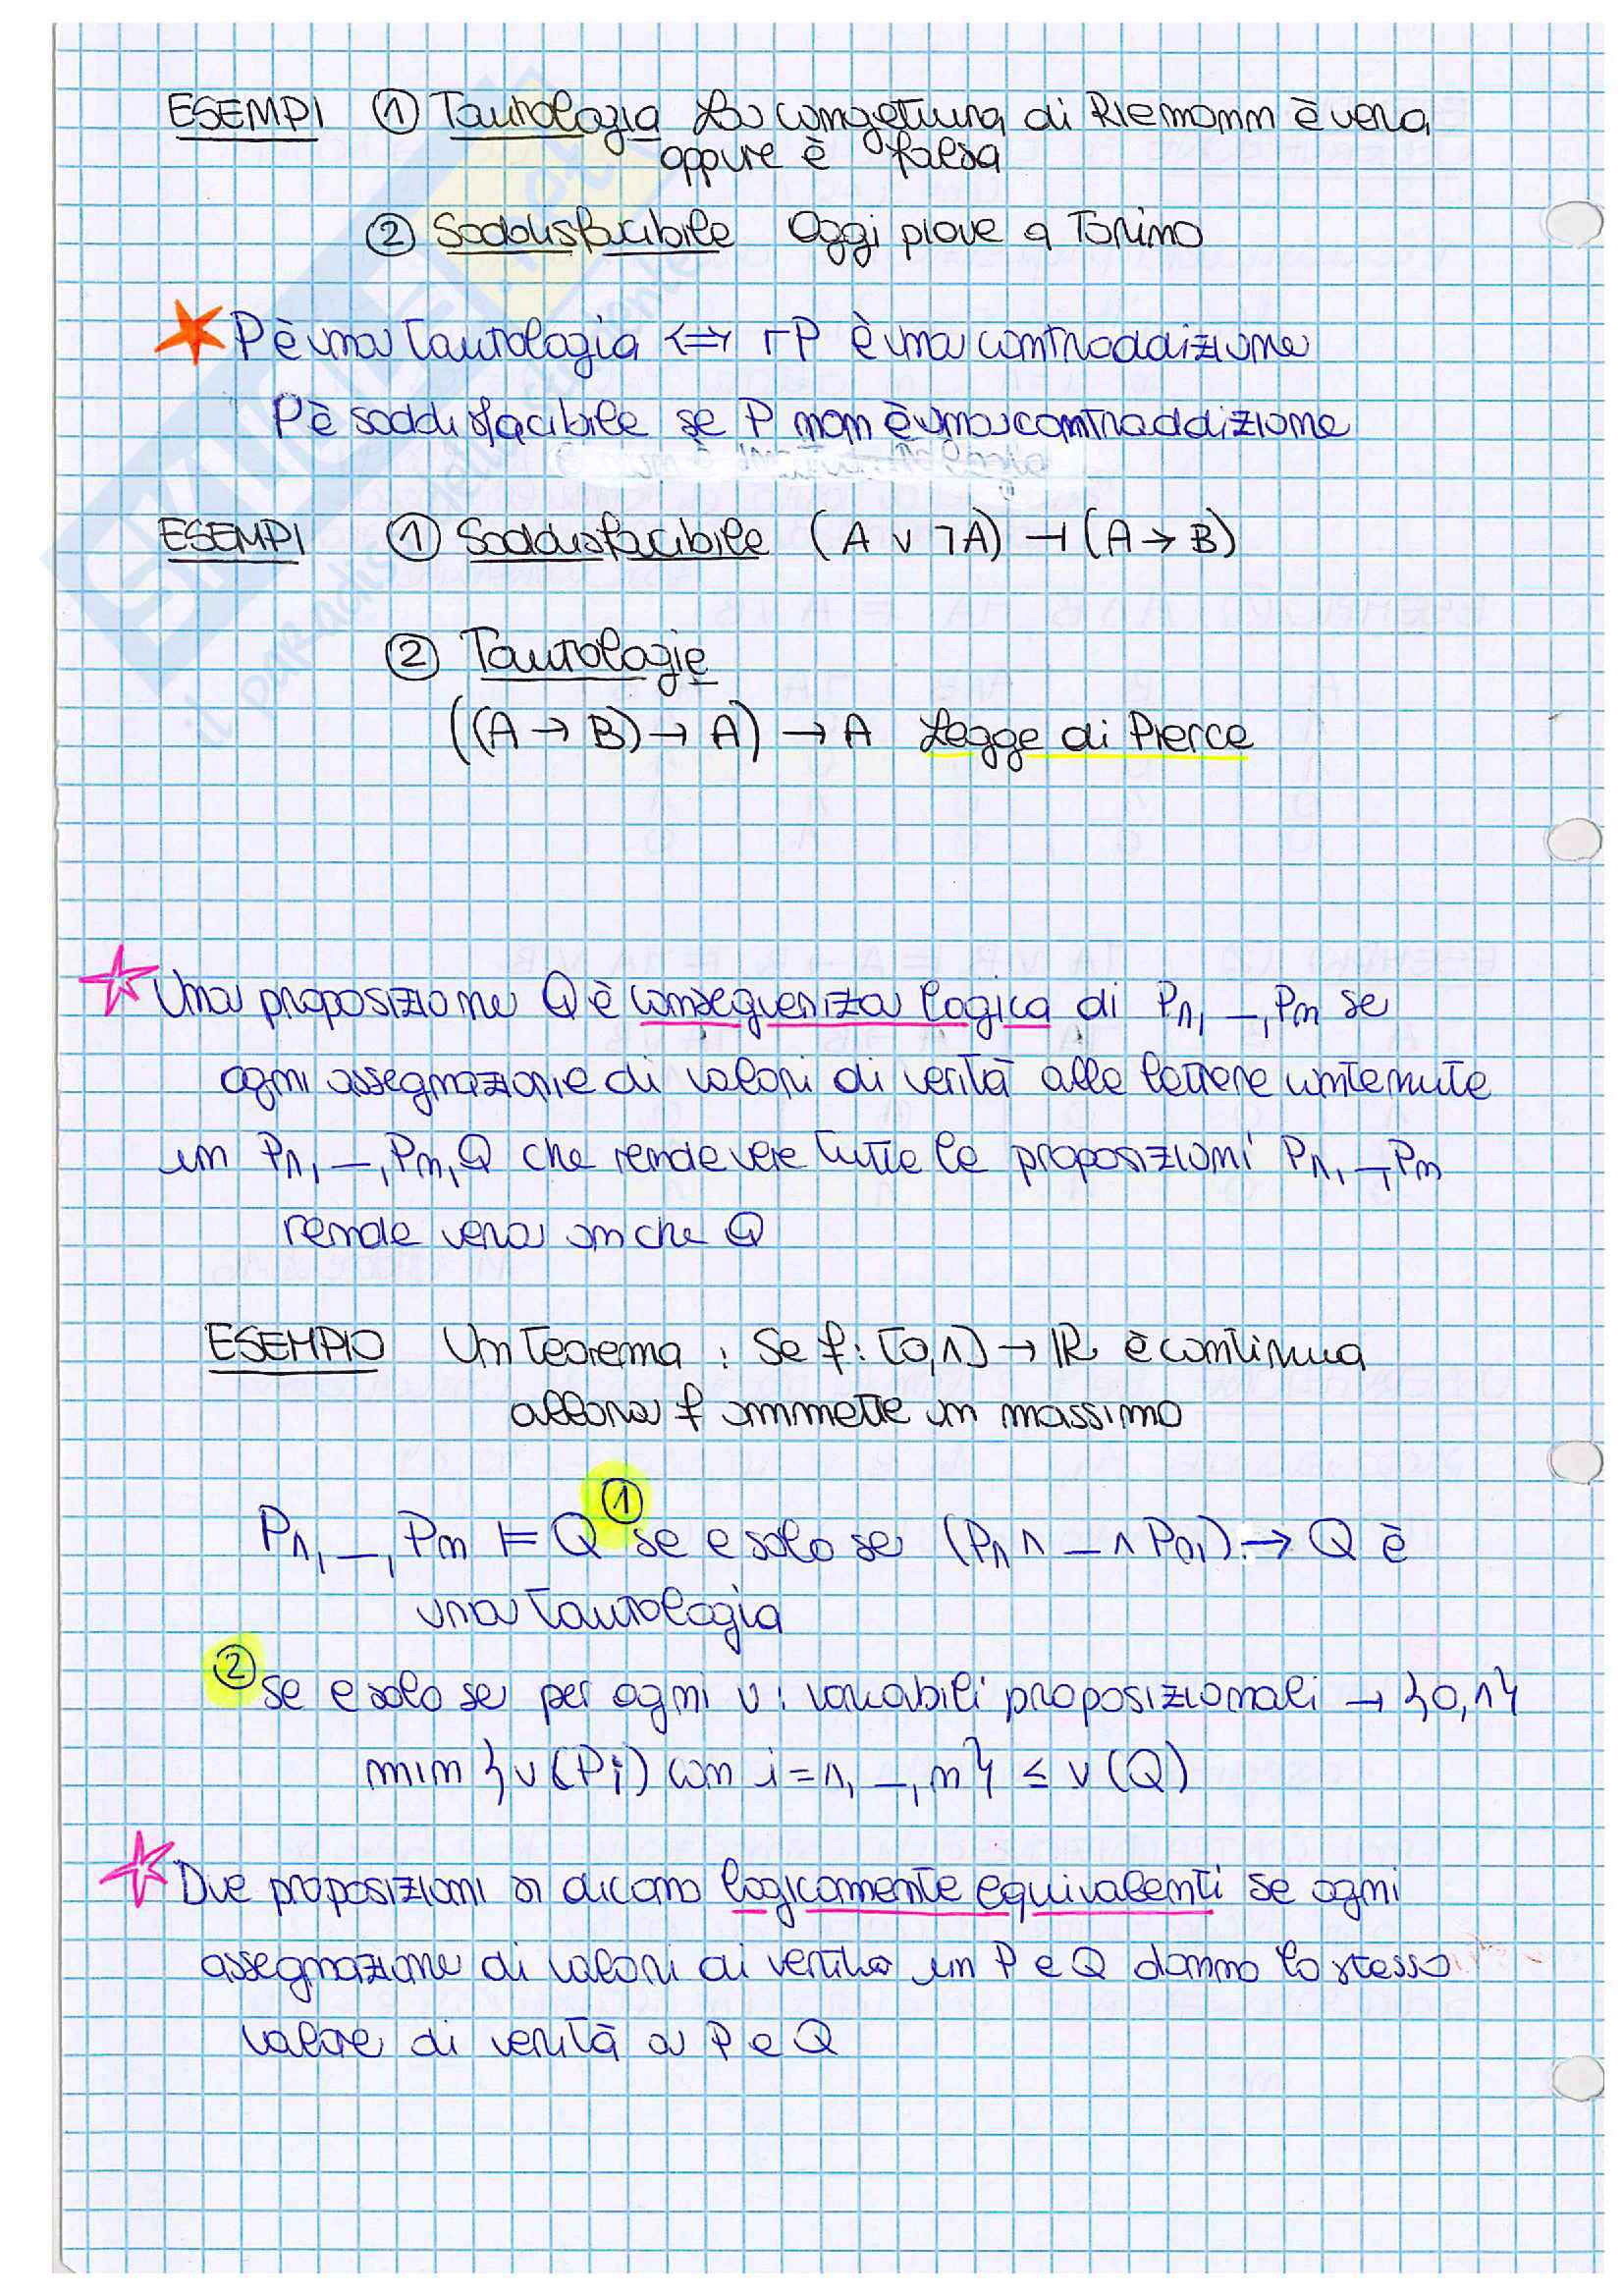 ESEMPI ① Tautologia La congettura di Riemann è vera
oppure è falsa
② Soddisfacibile Oggi piove a Torino
P è una tautologia ⟺ ¬P è una contraddizione
P è soddisfacibile se P non è una contraddizione
ESEMPI ① Soddisfacibile (A ∨ ¬A) → (A → B)
② Tautologie
((A → B) → A) → A Legge di Pierce
Una proposizione Q è conseguenza logica di P1, –, Pn se
ogni assegnazione di valori di verità alle lettere contenute
in P1, –, Pn, Q che rende vere tutte le proposizioni P1, –, Pn
rende vera anche Q
ESEMPIO Un teorema : Se f: [0,1] → ℝ è continua
allora f ammette un massimo
P1, –, Pn ⊨ Q ① se e solo se (P1 ∧ – ∧ Pn) → Q è
una tautologia
② se e solo se per ogni v : variabili proposizionali → {0,1}
min {v(Pi) con i=1, –, n} ≤ v(Q)
Due proposizioni si dicono logicamente equivalenti se ogni
assegnazione di valori di verità in P e Q danno lo stesso
valore di verità a P e Q